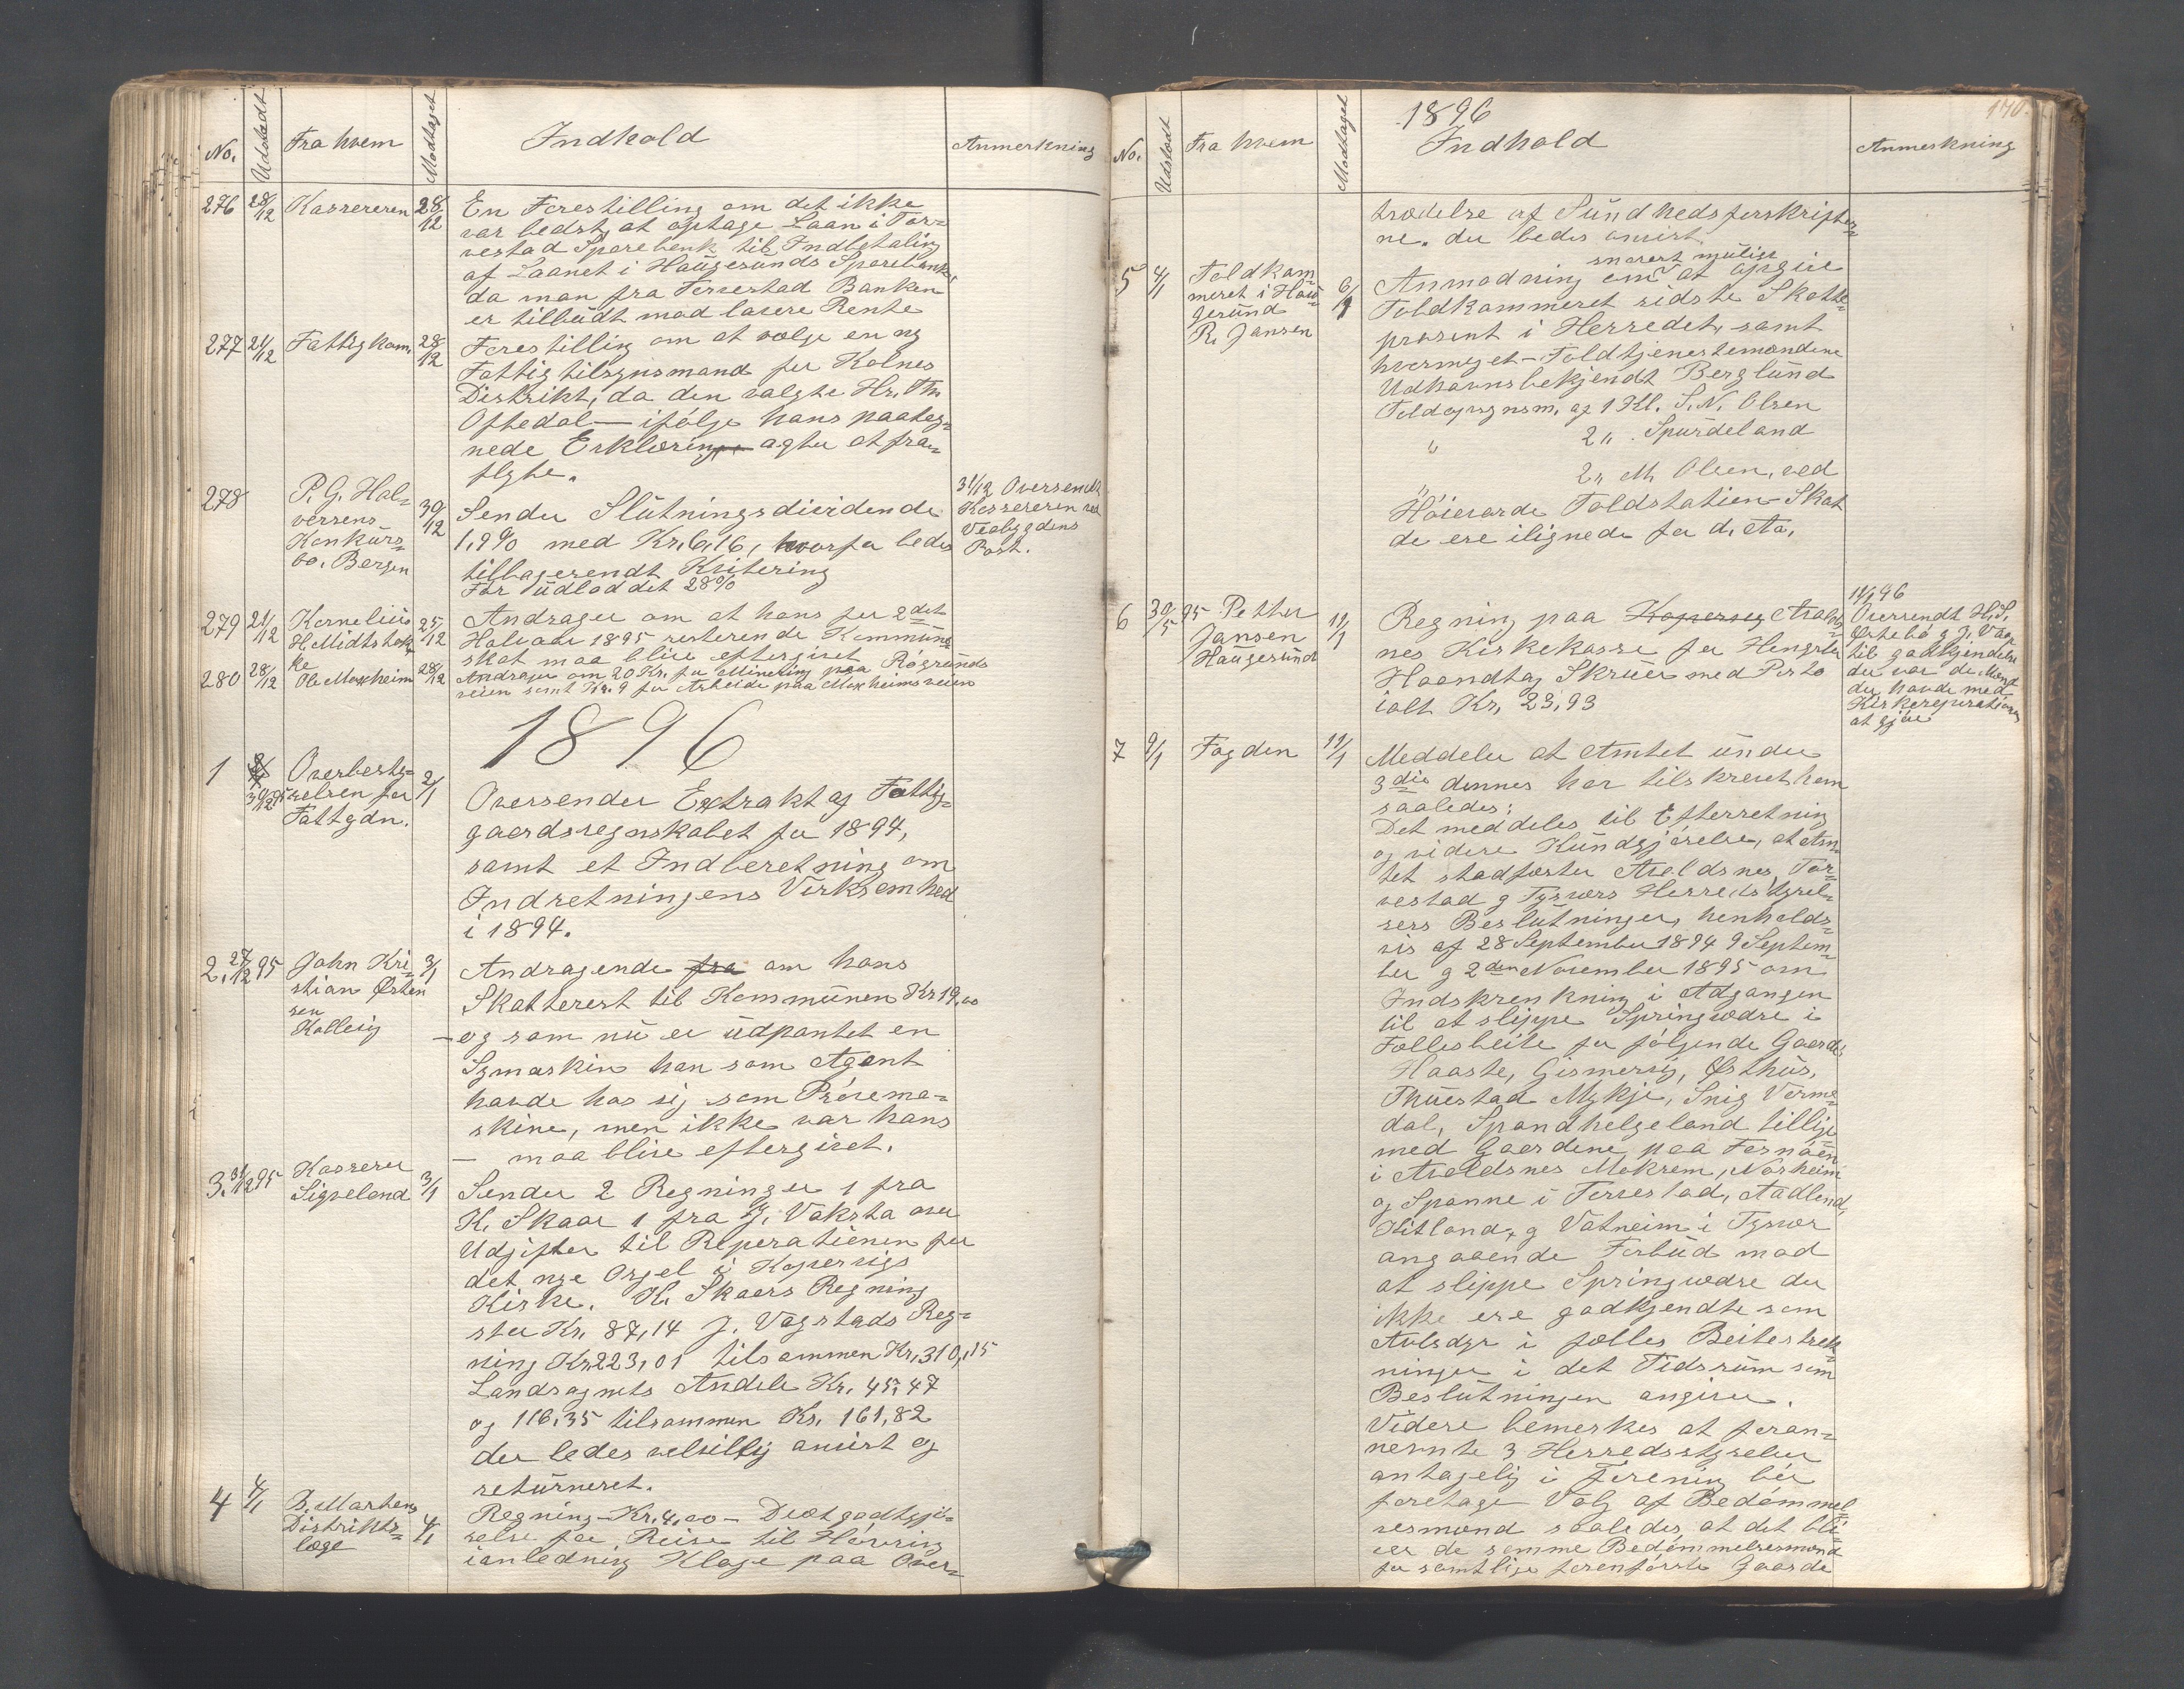 No. Udstedt Fra hvem Modtaget Indhold Anmerkning
276 28/12 Kassereren 28/12 En Forestilling om det ikke
var bedst, at optage Laan i Tor-
vestad Sparebank til Indbetaling
af Laanet i Haugesunds Sparebank,
da man fra Torvestad Banken
er tilbudt mod lavere Rente
277 21/12 Fattigkom. 28/12 Forestilling om at vælge en ny
Fattigtilsynsmand for Kolnes
Distrikt, da den valgte Hr. Th.
Oftedal — ifølge hans paateg-
nede Erklæring agter at fra-
flytte.
278 P. G. Hal-
versens
Konkurs-
bo. Bergen
30/12 Sender Slutningsdividende
1,9% med Kr. 6,16, hvorfor bedes
tilbagesendt Kvitering
Før udloddet 28%
31/12 Oversendt
Kassereren ved
Veabygdens
Post.
279 21/12 Kornelius
H. Midtstok-
ke
25/12 Andrager om at hans for 2det
Halvaar 1895 resterende Kommune
skat maa blive eftergivet
280 28/12 Ole Moxheim 28/12 Andrager om 20 Kr. for Minering paa Røgsunds
veien samt Kr. 9 for Arbeide paa Moxheimsveien
1896
1 30/12 95 Overbesty-
relsen for
Fattgdn.
2/1 Oversender Extrakt af Fattig-
gaardsregnskabet for 1894,
samt et Indberetning om
Indretningens Virksomhed
i 1894.
2. 27/12 95 John Kri-
stian Østen
sen
Kolleig
3/1 Andragende fra om hans
Skatterest til Kommunen Kr 19,00
— og som nu er udpantet en
Symaskin han som Agent
havde hos sig som Prøvema-
skine, men ikke var hans
— maa blive eftergivet.
3. 31/12 95 Kasserer
Sigveland
3/1 Sender 2 Regninger 1 fra
K. Skaar 1 fra J. Vaksta over
Udgifter til Reperationen for
det nye Orgel i Kopervigs
Kirke. K. Skaars Regning
stor Kr. 87,14 J. Vagstads Reg-
ning Kr. 223,01 tilsammen Kr. 310,15
Landsognets Andele Kr. 45,47
og 116,35 tilsammen Kr. 161,82
der bedes velvillig anvist og
returneret.
4 4/1 B. Martens
Distrikts-
læge
4/1 Regning — Kr. 4,00 — Diætgodtgjø-
relse for Reise til Håvring
i anledning Klage paa Over-
140.
1896
No. Udstedt Fra hvem Modtaget Indhold Anmerkning
trædelse af Sundhedsforskrifter-
ne. der bedes anvist.
5 4/1 Toldkam-
meret i Hau-
gesund
R. Jansen
6/1
snarest mulig
Anmodning om at opgive
Toldkammeret sidste Skatte-
prosent i Herredet, samt
hvormeget — Toldtjenestemændene
Udhavnsbekjendt Berglund
Toldopsynsm. af 1 Kl. S. N. Olsen
" 2 " Spurdeland
" 2 " M. Olsen, ved
Høievarde Toldstation — Skat
de ere ilignede for d. Ao.
6 30/5 95 Petter
Jansen
Haugesund
11/1 Regning paa Kopervig Avalds-
nes Kirkekasse for Hengsler
Haandtag Skruer med Porto
ialt Kr. 23,93
11/1 96
Oversendt H. S.
Ørtebø og J. Vaag
til godkjendelse
der var de Mænd
der havde med
Kirkereperationen
at gjøre
7 9/1 Fogden 11/1 Meddeler at Amtet under
3die dennes har tilskrevet ham
saaledes:
Det meddeles til Efterretning
og videre Kundgjørelse, at Am-
tet stadfæster Avaldsnes, Tor-
vestad og Tysværs Herredstyrel-
sers Beslutninger, henholds-
vis af 28 September 1894 9 Septem-
ber og 2den November 1895 om
Indskrenkning i Adgangen
til at slippe Springvædre i
Fællesbeite for følgende Gaarde
Haaste, Gismervig, Østhus,
Thuestad Mykje, Snig Værme-
dal, Spandhelgeland tillige
med Gaardene paa Fosnøen
i Avaldsnes Mokrem, Norheim
og Spanne i Torvestad, Aadland,
Hitland, og Vatneim i Tysvær
angaaende Forbud mod
at slippe Springvædre der
ikke ere godkjendte som
Avlsdyr i fælles Beitestræk-
ninger i det Tidsrum som
Beslutningen angiver.
Videre bemerkes at foran-
nevnte 3 Herredsstyrelser
antagelig i Forening bør
foretage Valg af Bedømmel-
sesmænd saaledes, at det bli-
ver de samme Bedømmelsesmænd
for samtlige foranførte Gaarde